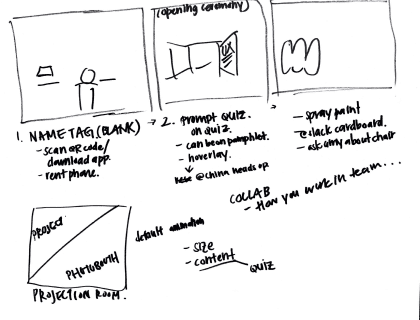 (opening ceremony)
1. NAME TAG (BLANK)
- scan QR code/
download app.
- rent phone.
→ 2. Prompt quiz.
on quiz.
- can be pamphlet.
- hoverlay.
@ china heads up
- spray paint
@ slack cardboard.
- ask amy about chair
COLLAB
- How you work in team...
PROJECT
PHOTOBOOTH
PROJECTION ROOM.
default animation
- size
- content
quiz